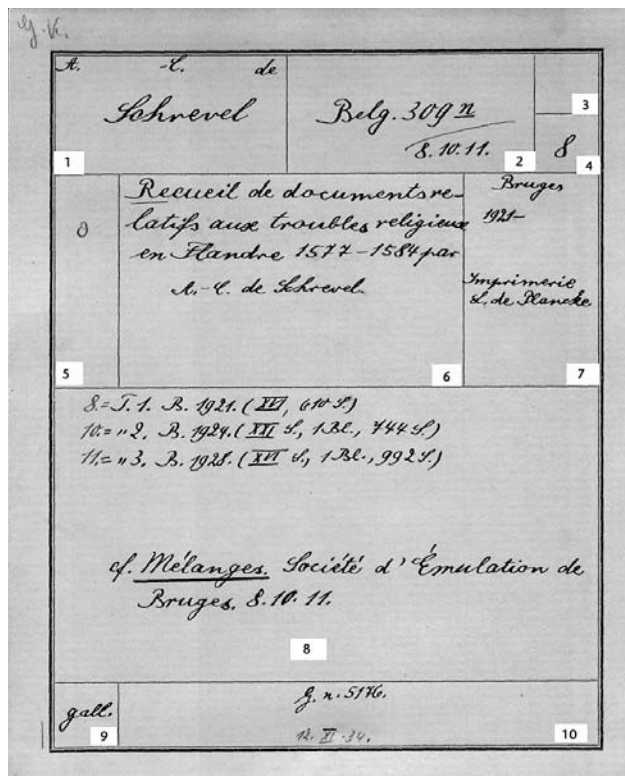 G. K.
A. -C. de
Schrevel
1
Belg. 309 n
8. 10. 11.
2
3
8
4
0
5
Recueil de documents re-
latifs aux troubles religieux
en Flandre 1577-1584 par
A.-C. de Schrevel
6
Bruges
1921-
Imprimerie
L. de Plancke
7
8.= T. 1. B. 1921. (XVI, 610 S.)
10.= „ 2. B. 1924. (XXI S., 1 Bl., 744 S.)
11.= „ 3. B. 1928. (XVI S., 1 Bl., 992 S.)
cf. Mélanges. Société d'Émulation de
Bruges. 8. 10. 11.
8
gall.
9
G. n. 5176.
12. XI. 34.
10